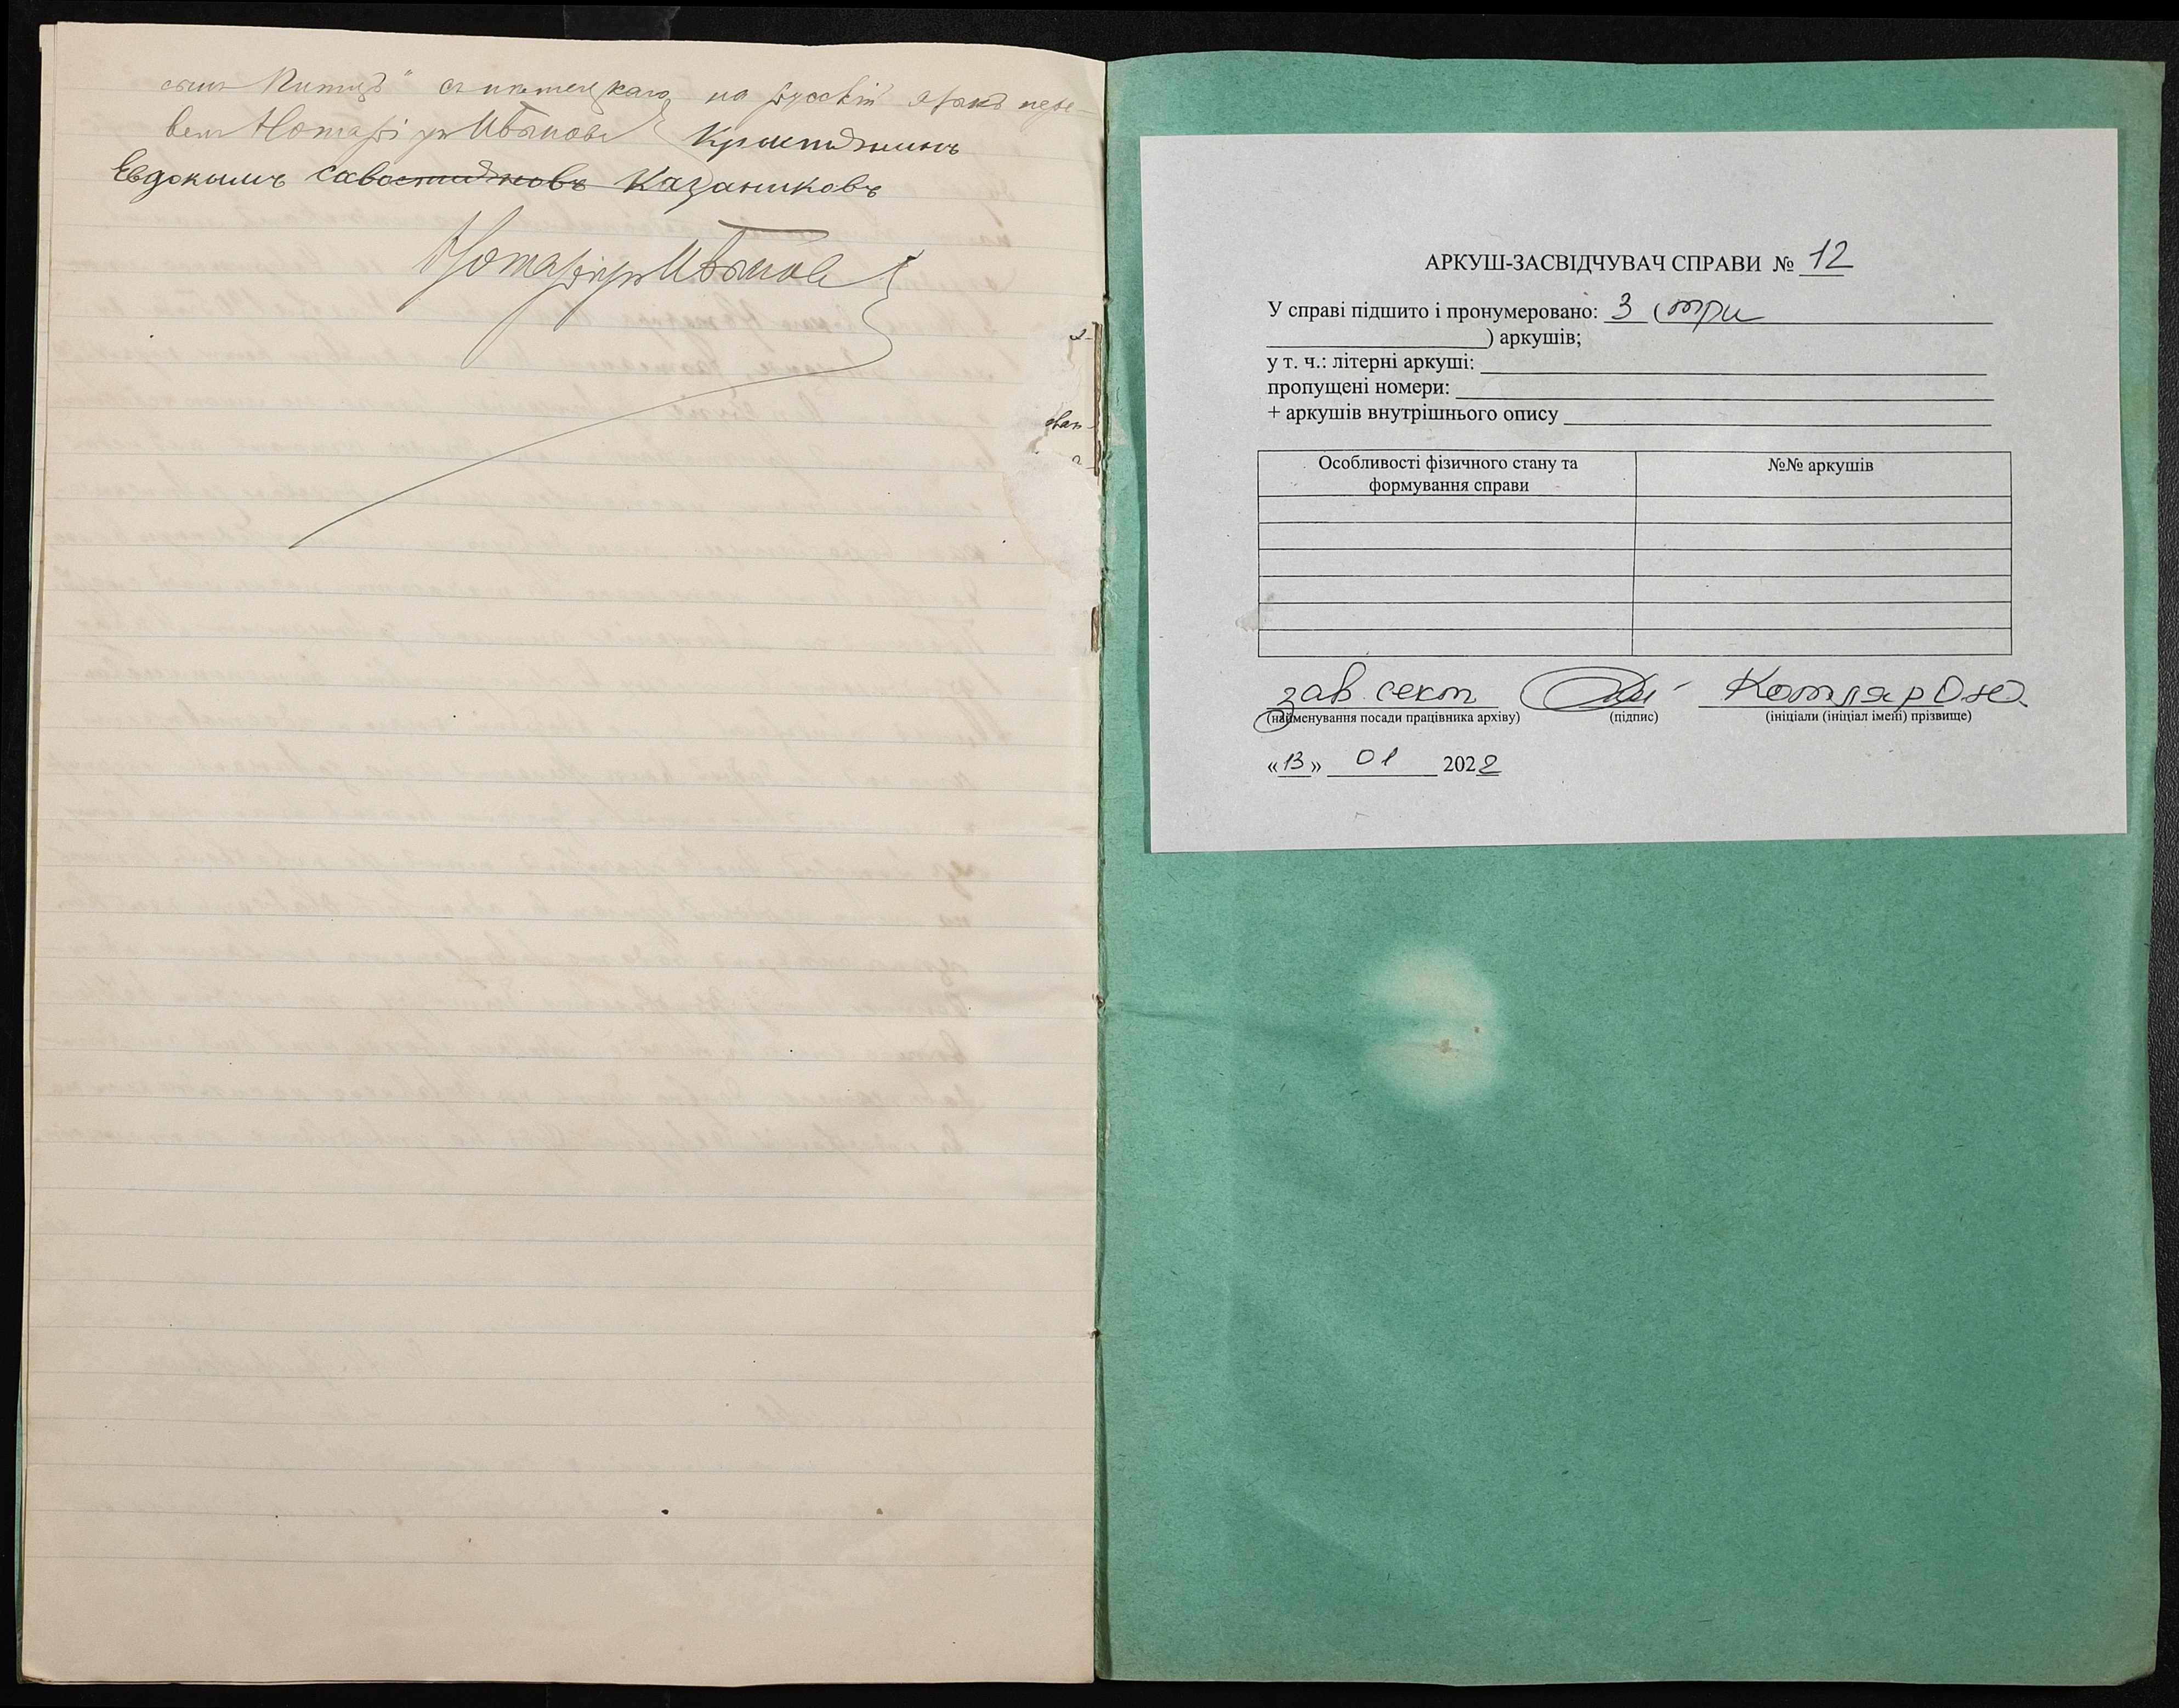 на русскій языкъ пере-
велъ Нотаріусъ Крестьянинъ
Евдокимъ Савостьяновъ Казаниковъ
Нотаріусъ
АРКУШ-ЗАСВІДЧУВАЧ СПРАВИ № 12
У справі підшито і пронумеровано: 3 (три
) аркушів;
у т. ч.: літерні аркуші:
пропущені номери:
+ аркушів внутрішнього опису
Особливості фізичного стану та формування справи
№№ аркушів
зав. сект Котляр О.Ю.
(найменування посади працівника архіву) (підпис) (ініціали (ініціал імені) прізвище)
«13» 01 2022